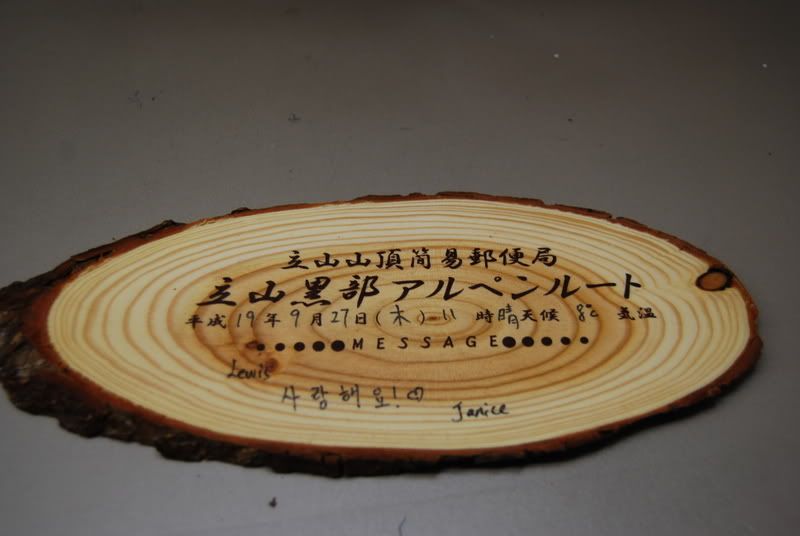 立山山頂簡易郵便局
立山黒部アルペンルート
平成19年9月27日(木)-11時晴天候8℃気温
●●●●●MESSAGE●●●●●
Lewis
사랑해요!♡
Janice